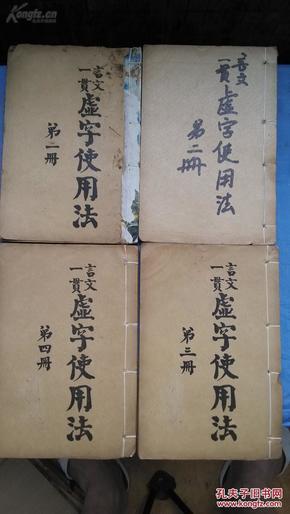 Kongfz.cn
言文
一貫
虛字使用法
第一冊
言文
一貫
虛字使用法
第二冊
言文
一貫
虛字使用法
第四冊
言文
一貫
虛字使用法
第三冊
孔夫子旧书网